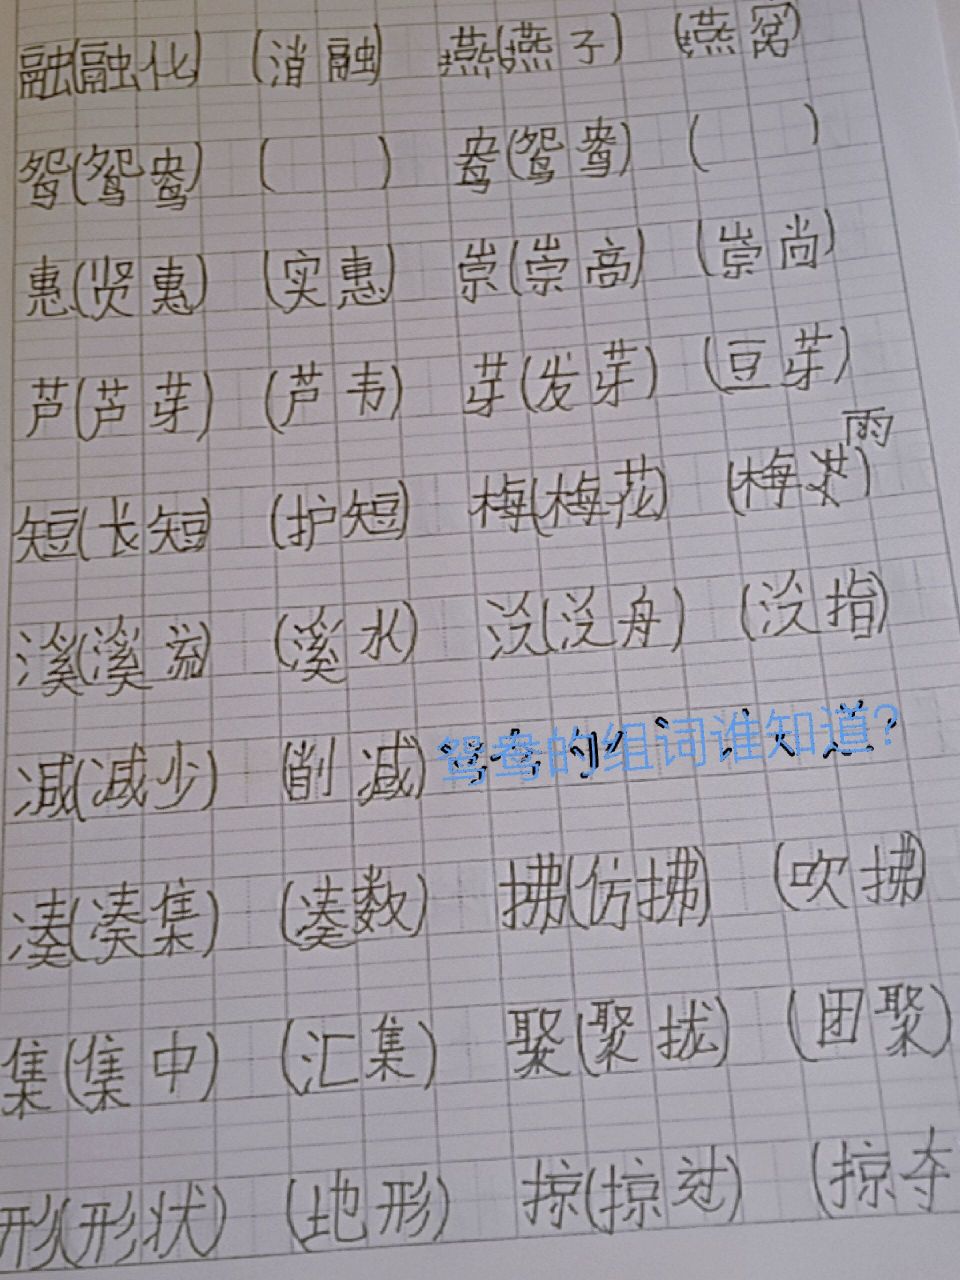 融(融化) (消融) 燕(燕子) (燕窝)
鸳(鸳鸯) ( ) 鸯(鸳鸯) ( )
惠(贤惠) (实惠) 崇(崇高) (崇尚)
芦(芦芽) (芦韦) 芽(发芽) (豆芽)
雨
短(长短) (护短) 梅(梅花) (梅)
溪(溪溢) (溪水) 泛(泛舟) (泛指)
减(减少) (削减) 鸳鸯的组词谁知道?
凑(凑集) (凑数) 拂(仿拂) (吹拂)
集(集中) (汇集) 聚(聚拢) (团聚)
形(形状) (地形) 掠(掠过) (掠夺